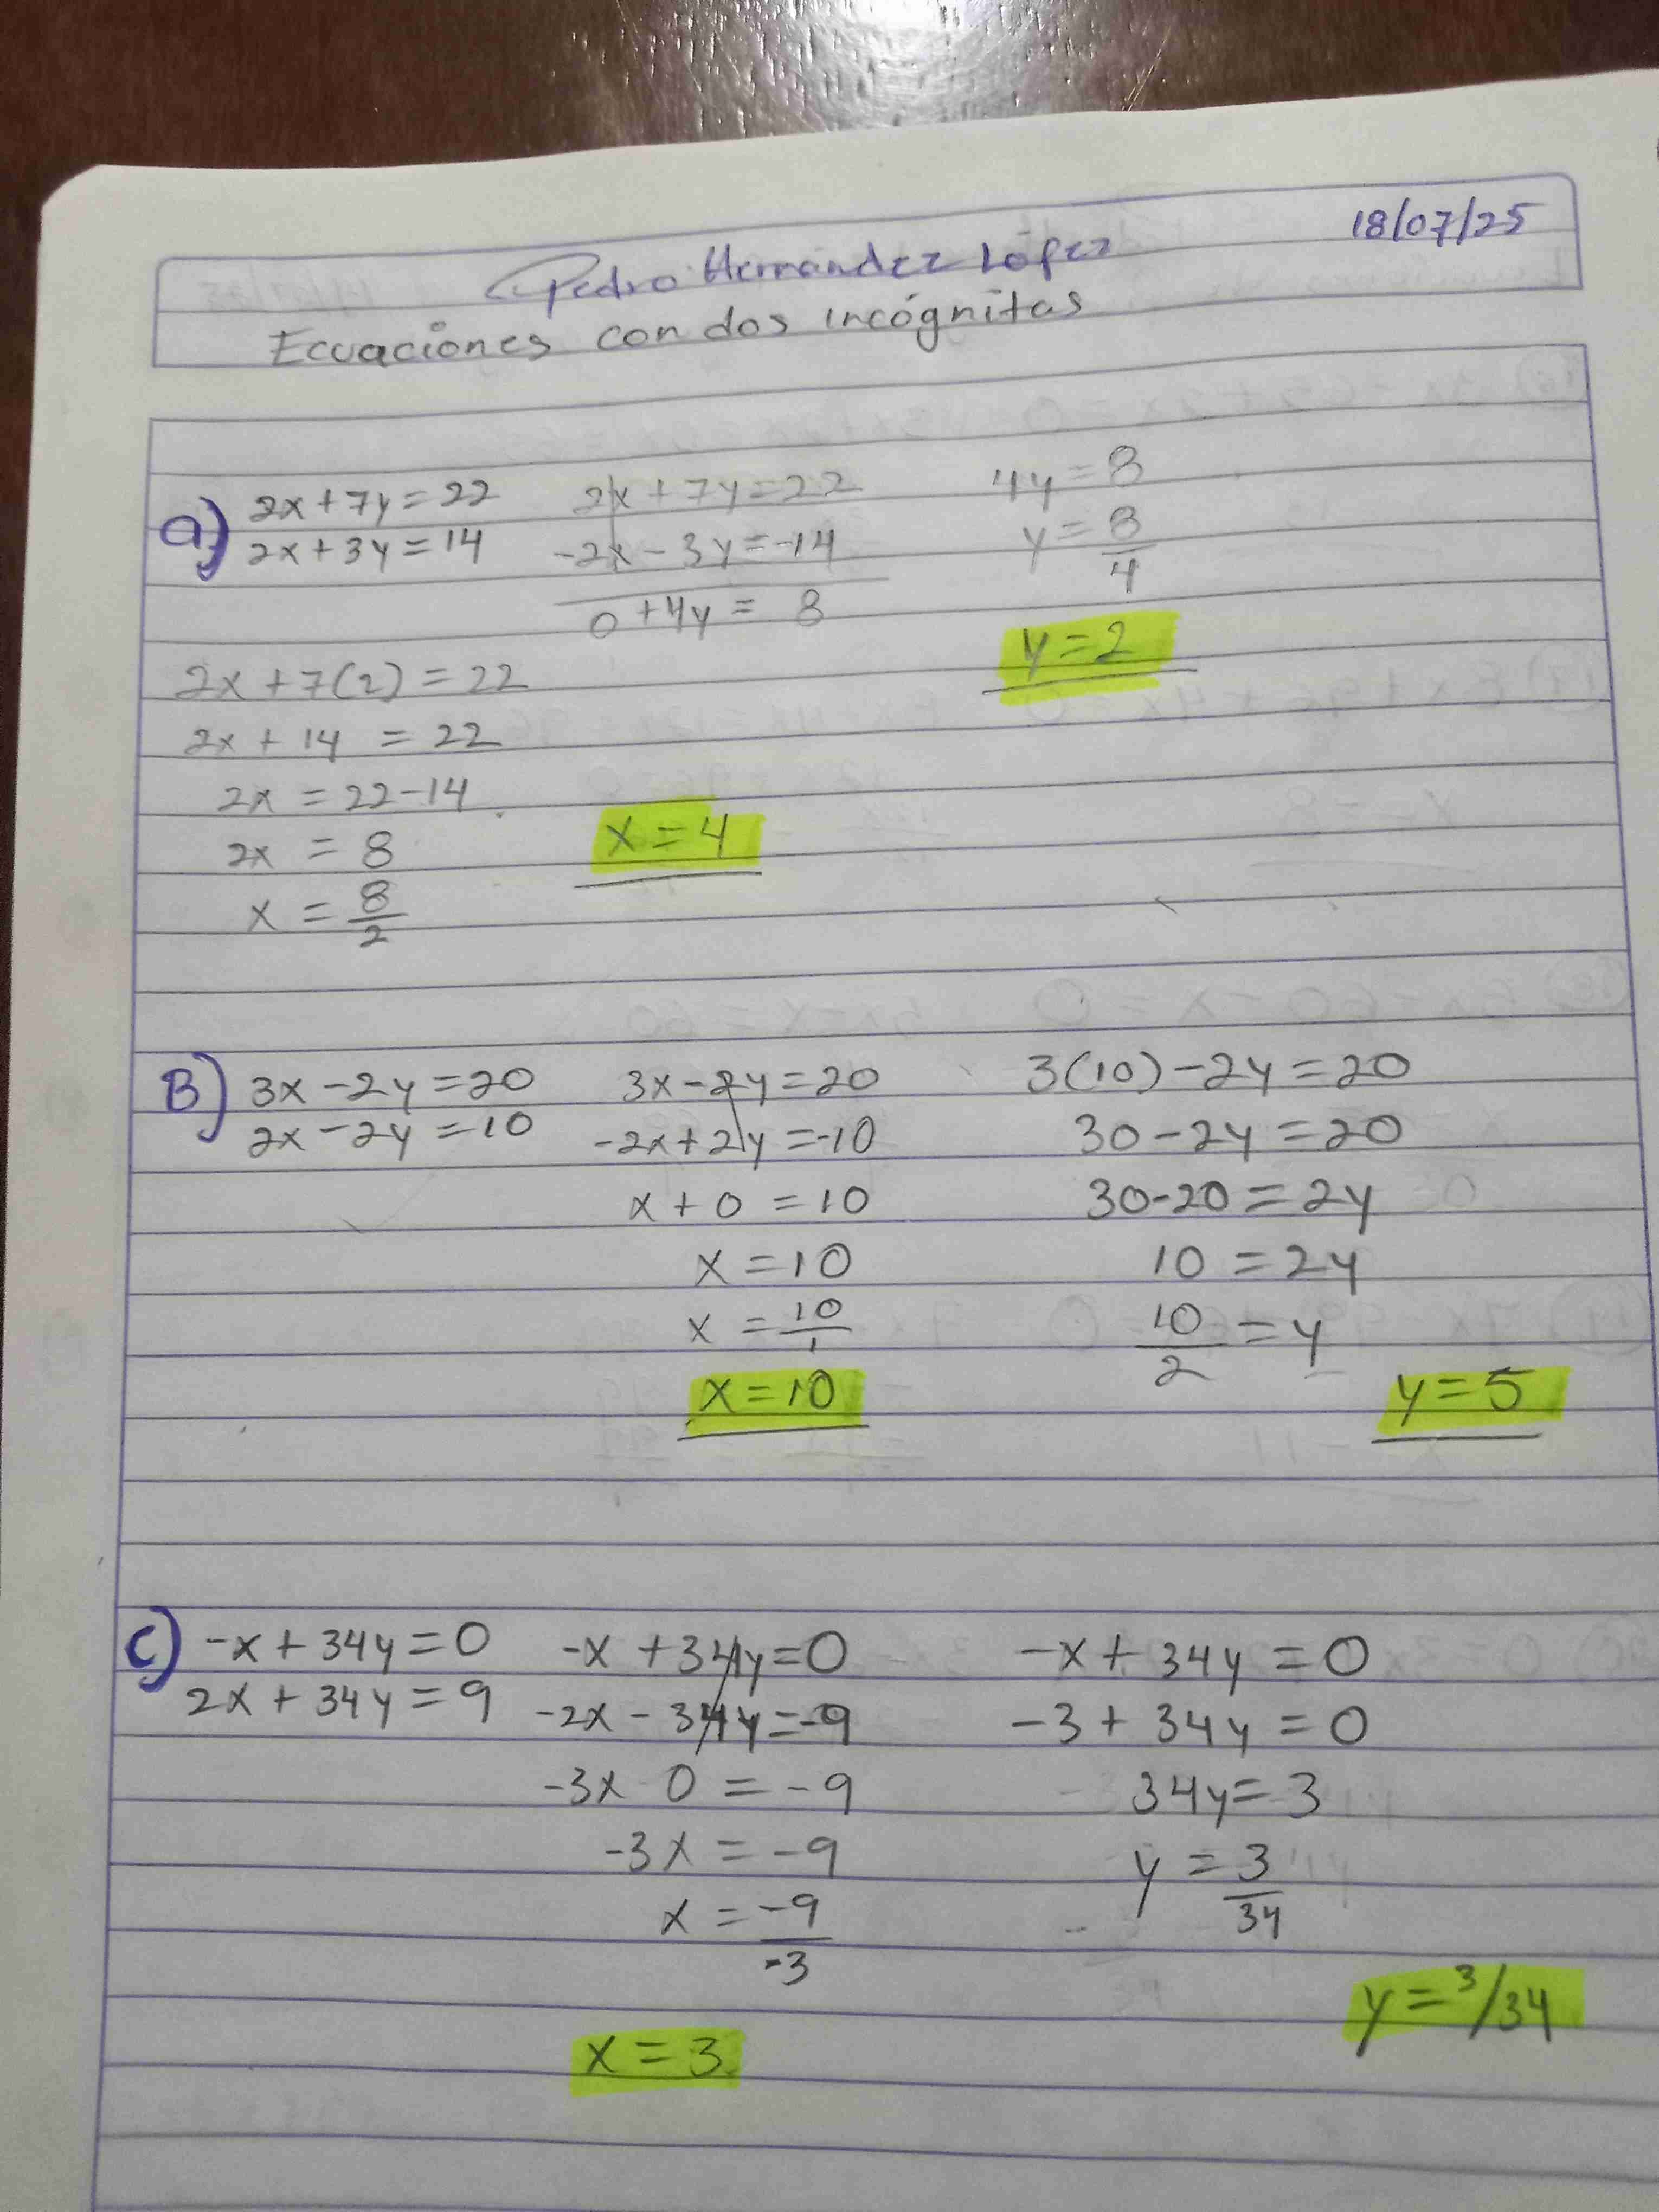 18/07/25
Pedro Hernández López
Ecuaciones con dos incógnitas
a) 2x + 7y = 22
2x + 3y = 14
2x + 7y = 22
-2x - 3y = -14
0 + 4y = 8
4y = 8
y = 8/4
y = 2
2x + 7(2) = 22
2x + 14 = 22
2x = 22 - 14
2x = 8
x = 8/2
x = 4
B) 3x - 2y = 20
2x - 2y = 10
3x - 2y = 20
-2x + 2y = -10
x + 0 = 10
x = 10
x = 10/1
x = 10
3(10) - 2y = 20
30 - 2y = 20
30 - 20 = 2y
10 = 2y
10/2 = y
y = 5
C) -x + 34y = 0
2x + 34y = 9
-x + 34y = 0
-2x - 34y = -9
-3x 0 = -9
-3x = -9
x = -9/-3
x = 3
-x + 34y = 0
-3 + 34y = 0
34y = 3
y = 3/34
y = 3/34